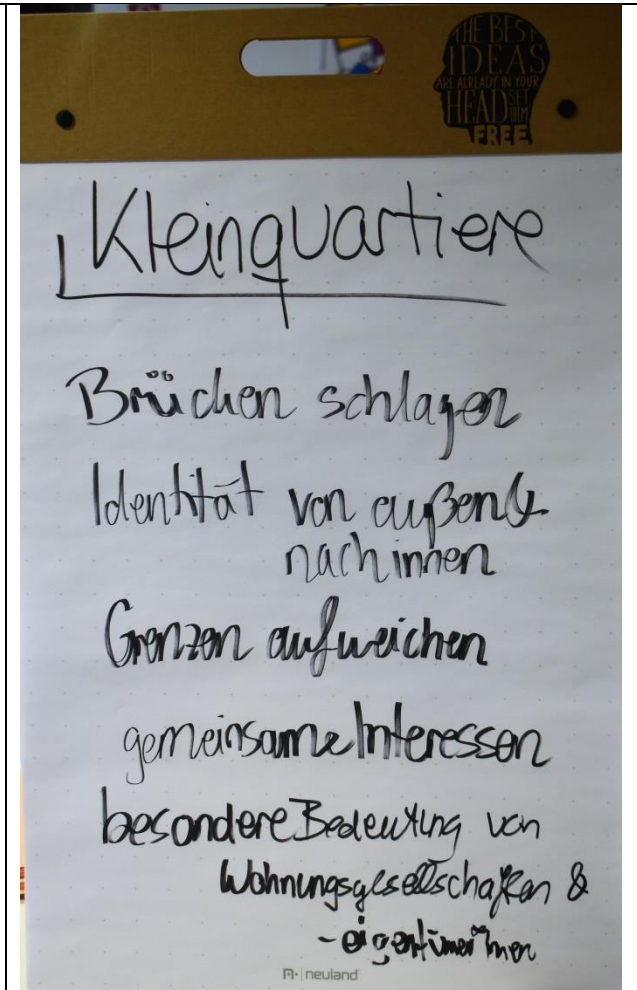 THE BEST
IDEAS
ARE ALREADY IN YOUR
HEAD SET
THEM
FREE
Kleinquartiere
Brücken schlagen
Identität von außen &
nach innen
Grenzen aufweichen
gemeinsame Interessen
besondere Bedeutung von
Wohnungsgesellschaften &
-eigentümer*innen
neuland